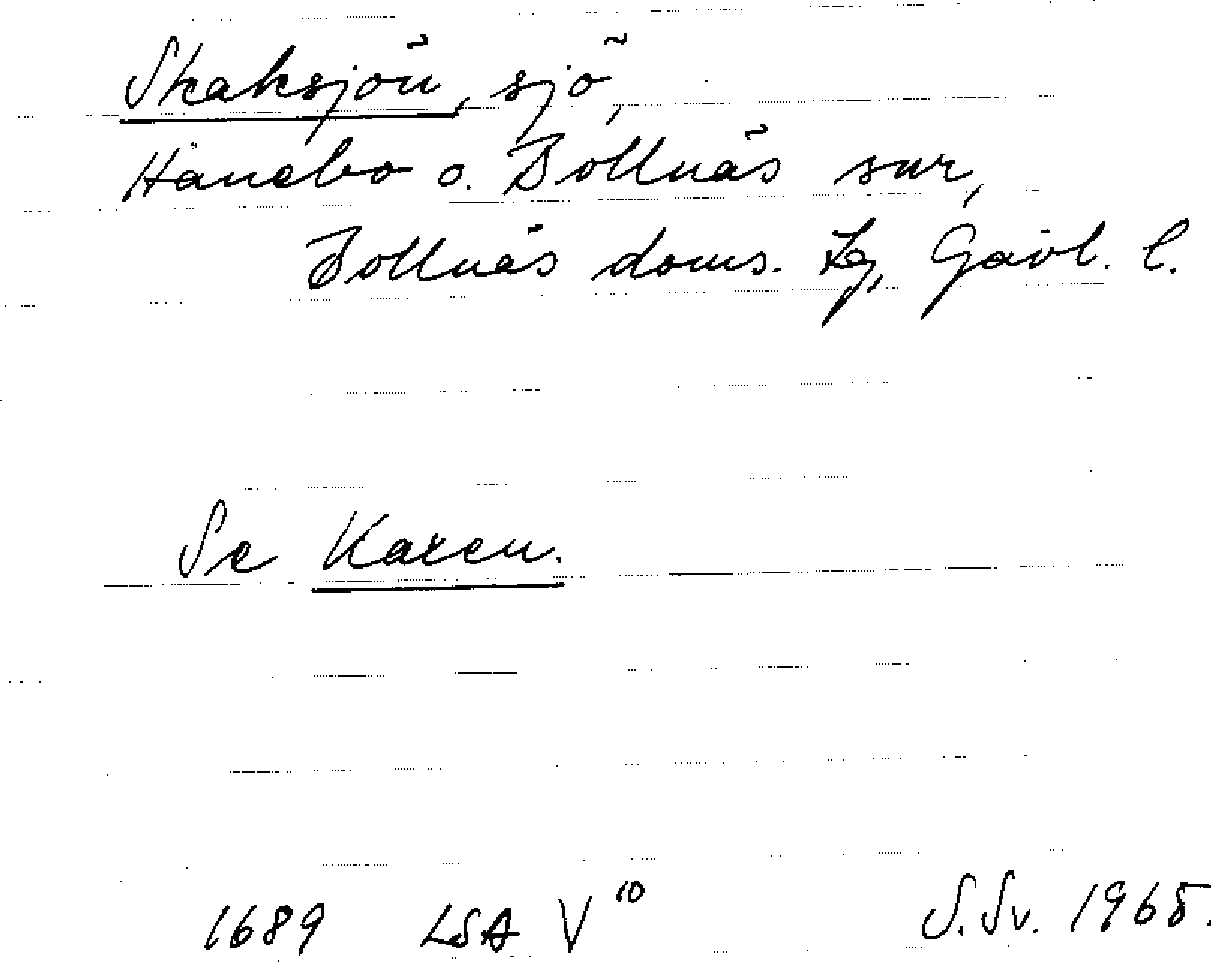 Skaksjön, sjö,
Hanebo o. Bollnäs snr,
Bollnäs doms. Lg, Gävl. l.
Se Karen.
1689 LSA V¹⁰ S. Sv. 1965.